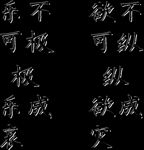 乐不
可极,
极,
乐成,
哀
欲不
可纵,
纵,
欲成,
灾